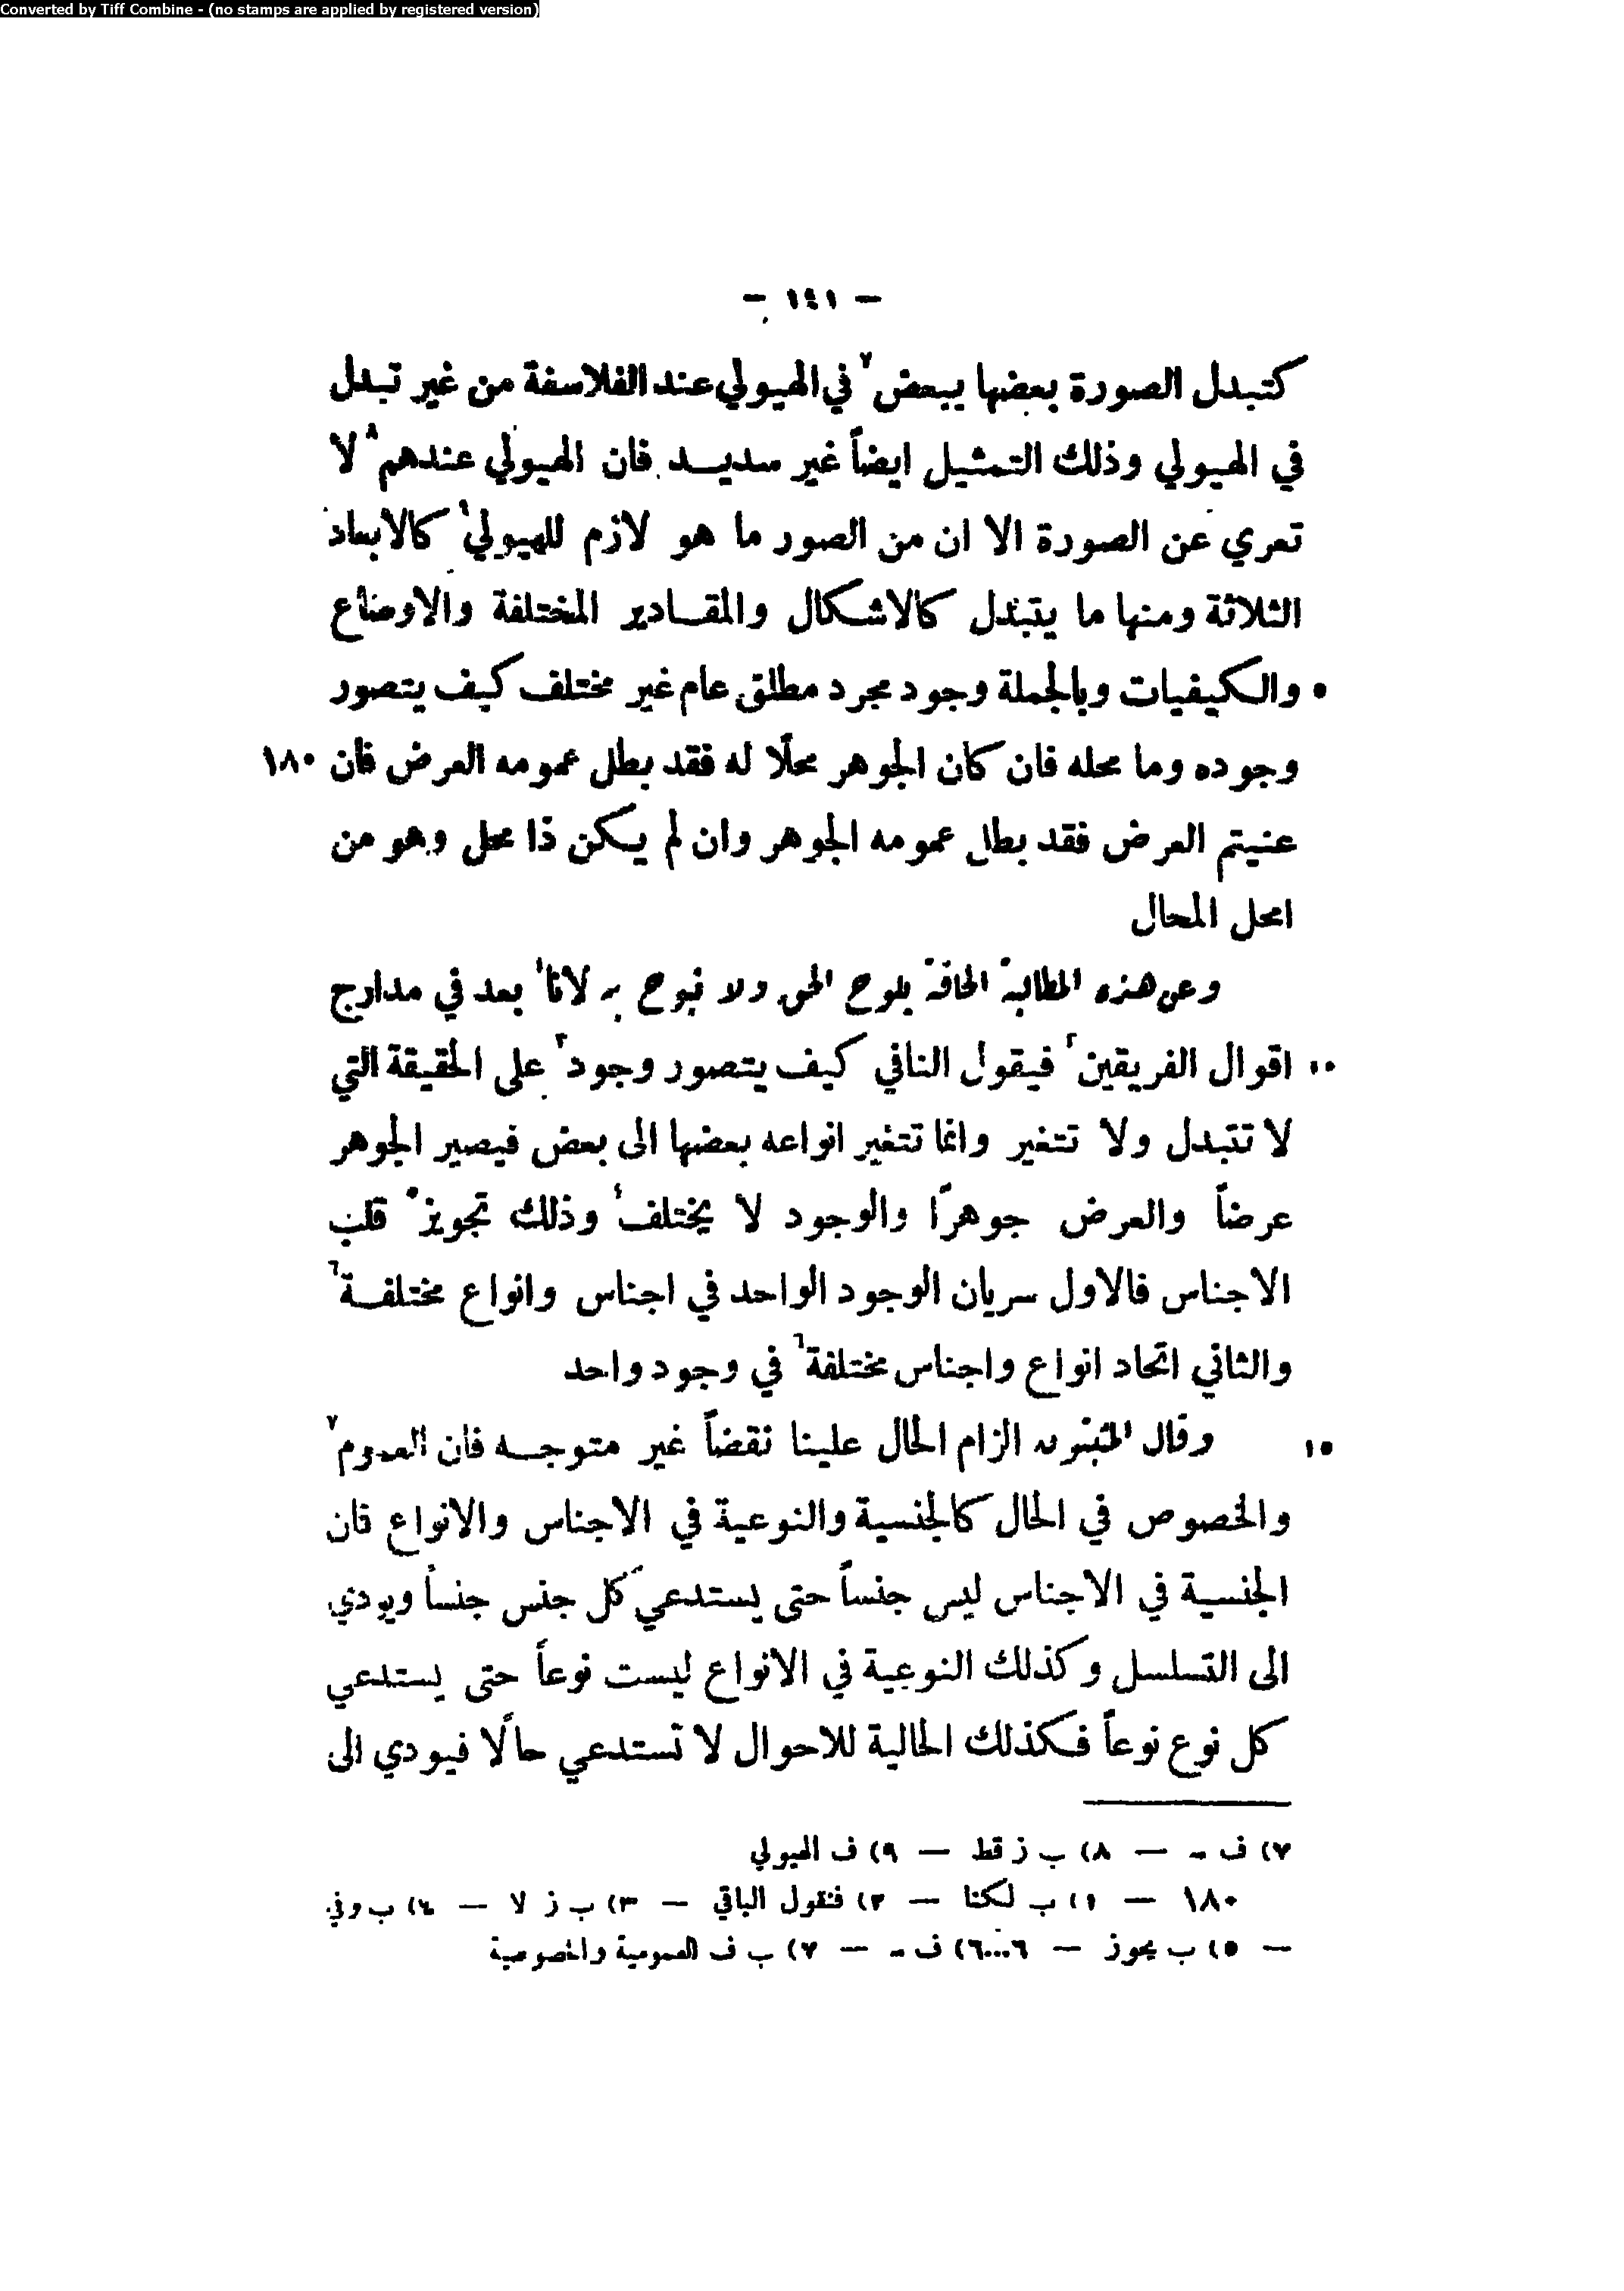 Converted by Tiff Combine - (no stamps are applied by registered version)
– ١٤١ –
كتبدل الصورة بعضها ببعض٧ في الهيولي عند الفلاسفة من غير تبدل
في الهيولي وذلك التمثيل ايضاً غير سديد فان الهيولي عندهم٨ لا
تعري عن الصورة الا ان من الصور ما هو لازم للهيولي٩ كالابعاد
الثلاثة ومنها ما يتبدل كالاشكال والمقادير المختلفة والاوضاع
٥ والكيفيات وبالجملة وجود مجرد مطلق عام غير مختلف كيف يتصور
وجوده وما محله فان كان الجوهر محلًا له فقد بطل عمومه العرض فان ١٨٠
عنيتم العرض فقد بطل عمومه الجوهر وان لم يكن ذا محل وهو من
امحل المحال
وعن هذه المطالبة الحاقة يلوح الحق ولا نبوح به لانا١ بعد في مدارج
١٠ اقوال الفريقين٢ فيقول النافي كيف يتصور وجود٣ على الحقيقة التي
لا تتبدل ولا تتغير وانما تتغير انواعه بعضها الى بعض فيصير الجوهر
عرضاً والعرض جوهرًا والوجود لا يختلف٤ وذلك تجويز٥ قلب
الاجناس فالاول سريان الوجود الواحد في اجناس وانواع مختلفة٦
والثاني اتحاد انواع واجناس مختلفة٦ في وجود واحد
١٥ وقال المثبتون الزام الحال علينا نقضاً غير متوجه فان العموم٧
والخصوص في الحال كالجنسية والنوعية في الاجناس والانواع فان
الجنسية في الاجناس ليس جنساً حتى يستدعي كل جنس جنساً ويودي
الى التسلسل وكذلك النوعية في الانواع ليست نوعاً حتى يستدعي
كل نوع نوعاً فكذلك الحالية للاحوال لا تستدعي حالًا فيودي الى
٧) ف – — ٨) ب ز قط — ٩) ف الهيولي
١٨٠ — ١) ب لكنا — ٢) فنقول الباقي — ٣) ب ز لا — ٤) ب وفي
— ٥) ب يجوز — ٦...٦) ف – — ٧) ب ف العمومية والخصوصية